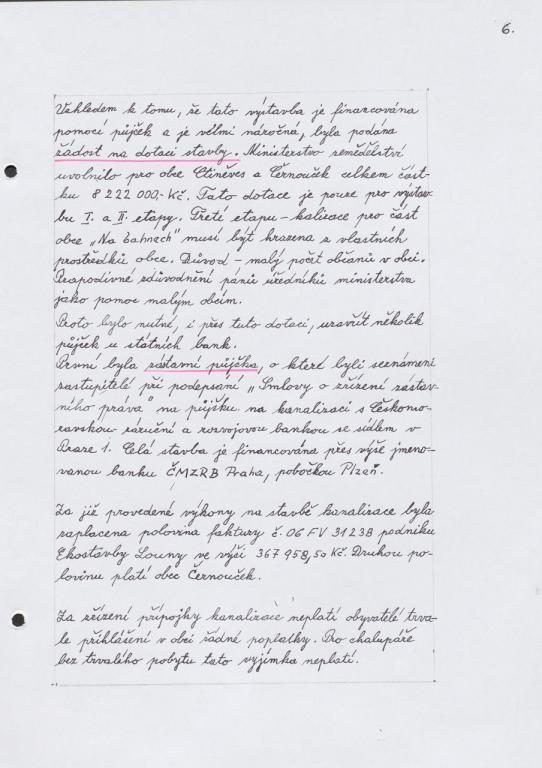 6.
Vzhledem k tomu, že tato výstavba je financována
pomocí půjček a je velmi náročná, byla podána
žádost na dotaci stavby. Ministerstvo zemědělství
uvolnilo pro obce Ctiněves a Černouček celkem část-
ku 8 222 000,- Kč. Tato dotace je pouze pro výstav-
bu I. a II. etapy. Třetí etapu - kalizace pro část
obce „Na Lahnech" musí být hrazena z vlastních
prostředků obce. Důvod - malý počet občanů v obci.
Prapodivné zdůvodnění pánů úředníků ministerstva
jako pomoc malým obcím.
Proto bylo nutné, i přes tuto dotaci, uzavřít několik
půjček u státních bank.
První byla zástavní půjčka, o které byli seznámeni
zastupitelé při podepsání „Smlovy o zřízení zástav-
ního práva" na půjčku na kanalizaci s Českomo-
ravskou záruční a rozvojovou bankou se sídlem v
Praze 1. Celá stavba je financována přes výše jmeno-
vanou banku ČMZRB Praha, pobočkou Plzeň.
Za již provedené výkony na stavbě kanalisace byla
zaplacena polovina faktury č. 06 FV 31238 podniku
Ekostavby Louny ve výši 367 958,50 Kč. Druhou po-
lovinu platí obec Černouček.
Za zřízení přípojky kanalizace neplatí obyvatelé trva-
le přihlášení v obci řádné poplatky. Pro chalupáře
bez trvalého pobytu tato vyjímka neplatí.